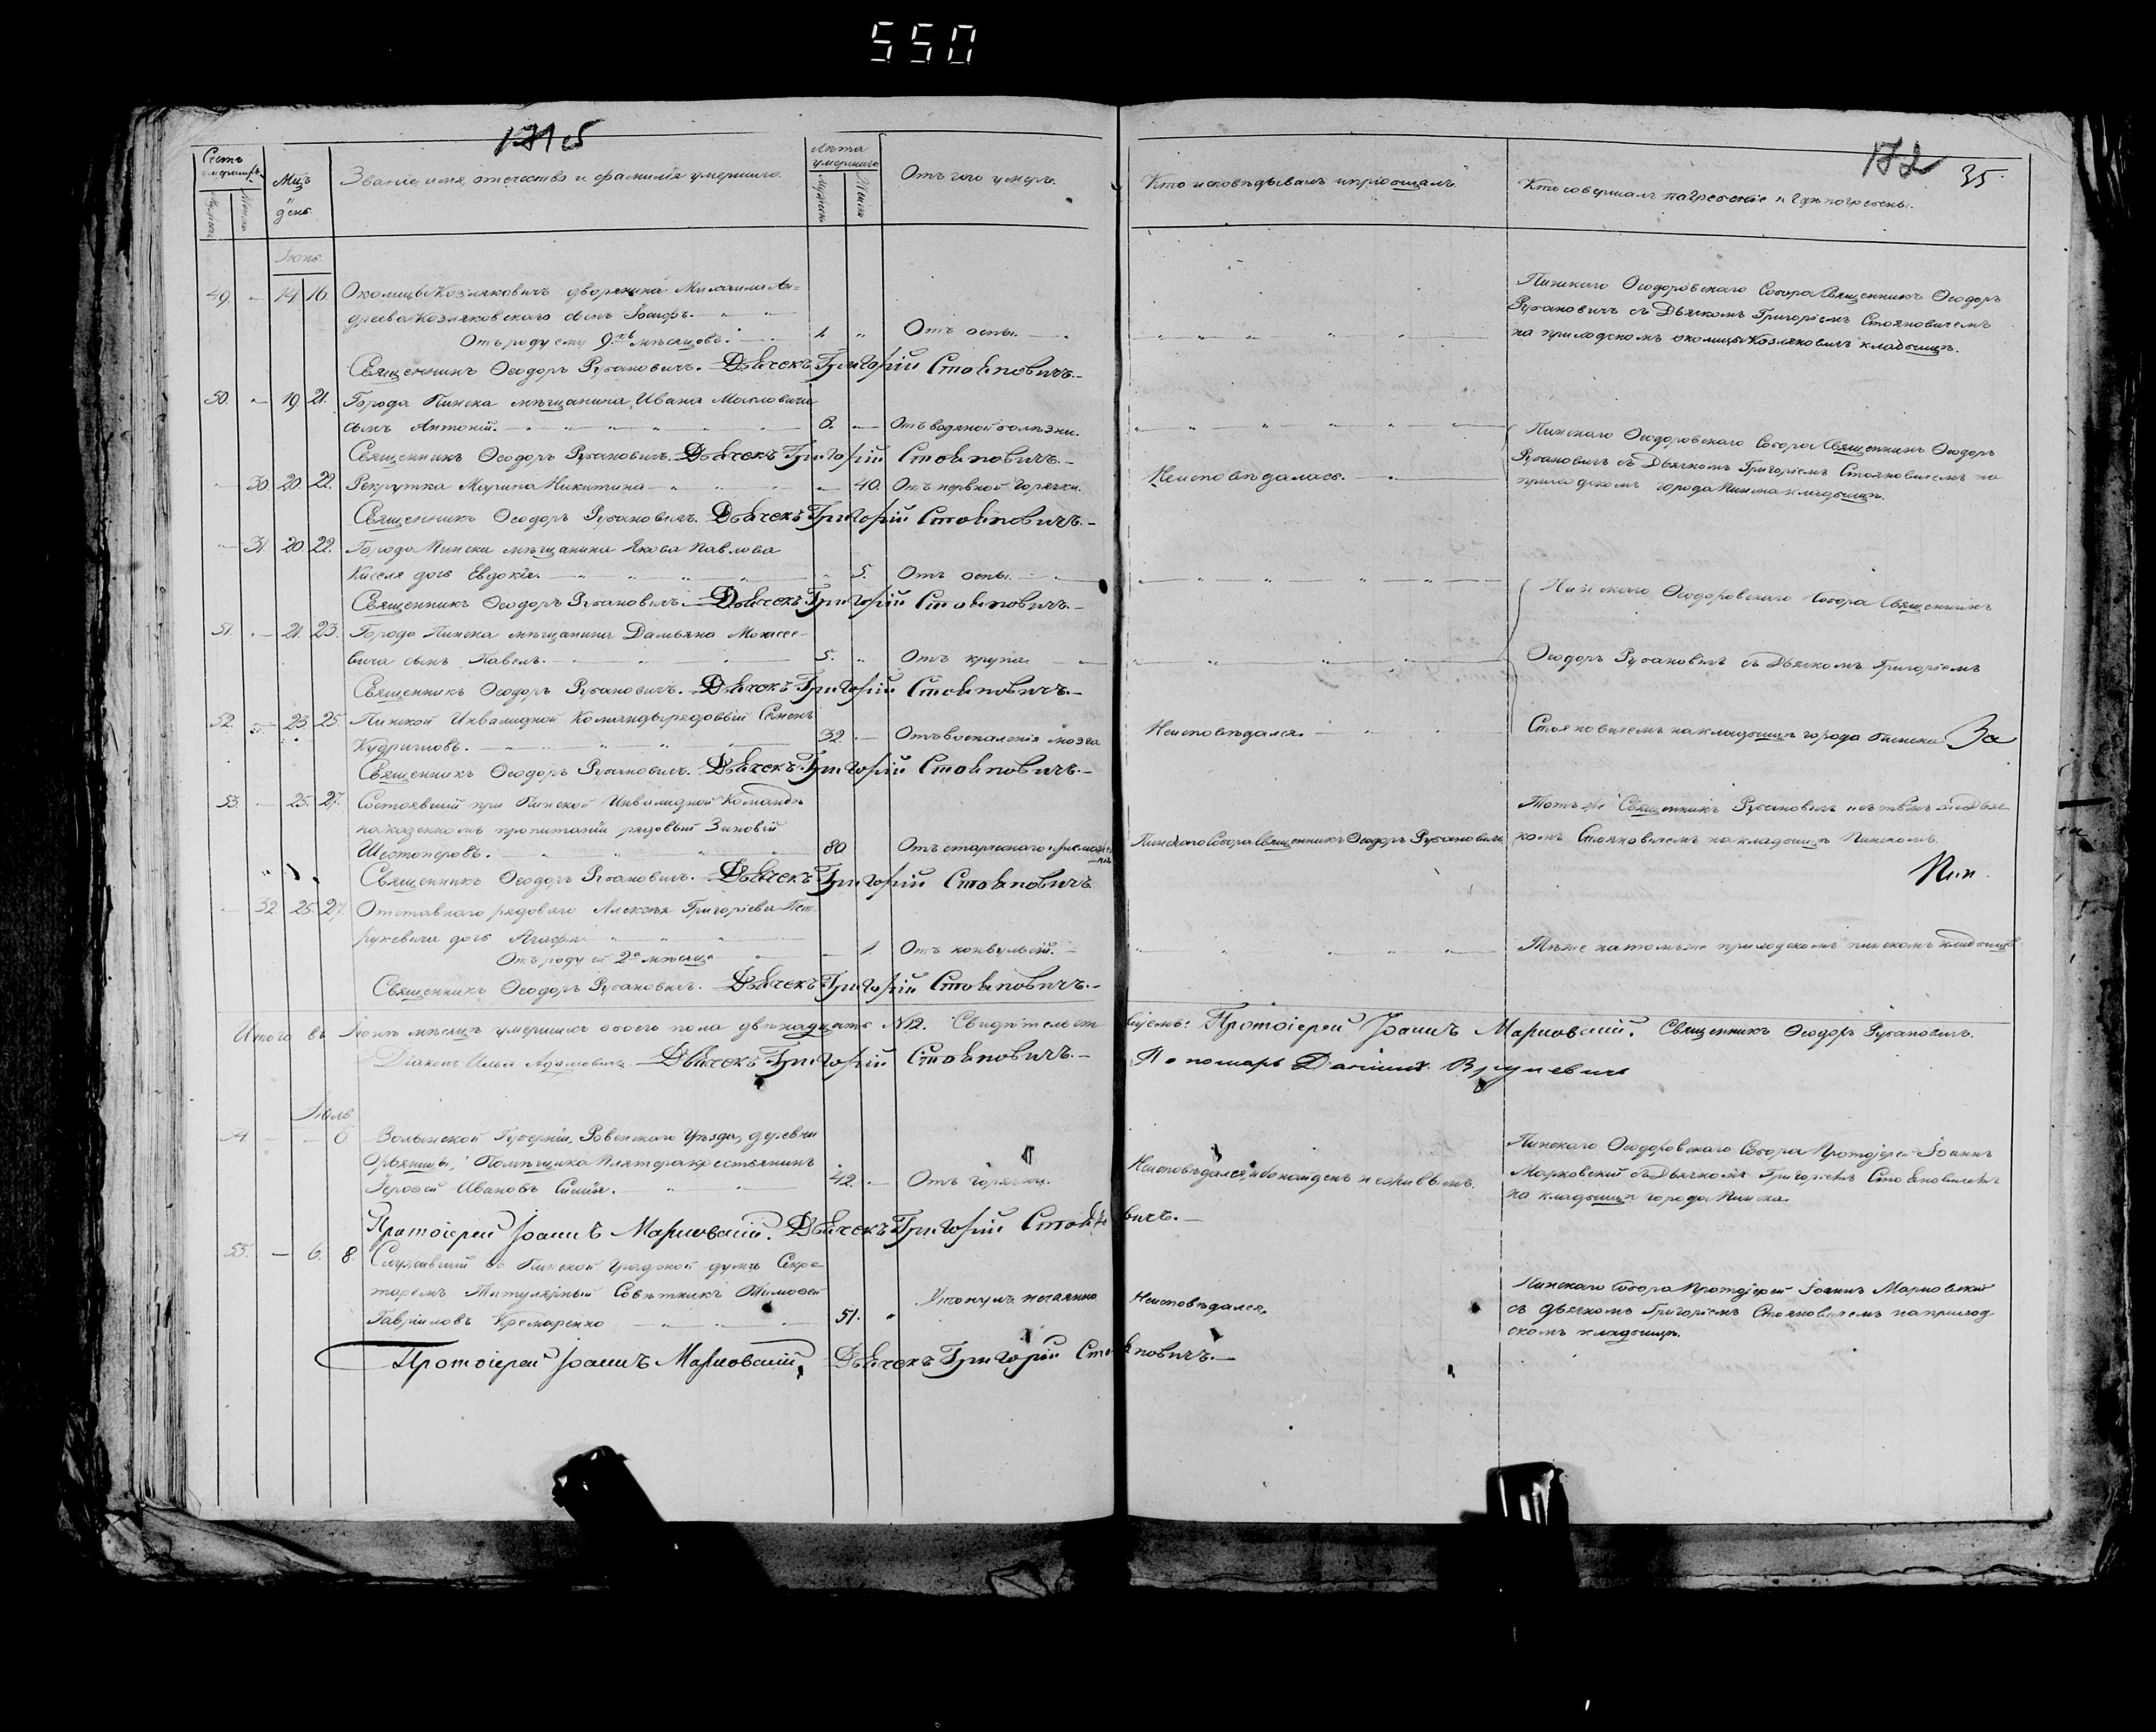 550
171 об
172 35
Счетъ умершихъ
Мужеска
Женска
Мцъ
День
Званіе, имя, отчество и фамилія умершаго.
Лѣта умершаго
Мужеска
Женска
Отъ чего умеръ.
Кто исповѣдывалъ и пріобщалъ.
Кто совершалъ погребеніе и гдѣ погребены.
Іюнь
49. — 14 16. Околицы Козляковичъ дворянина Михаила Ан=
дреева Козляковскаго сынъ Іосифъ.
Отъ роду ему 9.ть мѣсяцовъ. 1. Отъ оспы.
Пинскаго Ѳеодоровскаго Собора Священникъ Ѳеодоръ
Рубановичъ съ Дьячкомъ Григоріемъ Стояновичемъ
на приходскомъ околицы Козляковичъ кладбищѣ.
Священникъ Ѳеодоръ Рубановичъ. Дьячекъ Григорій Стояновичъ.
50. — 19. 21. Города Пинска мѣщанина Ивана
сынъ Антоній. 8. Отъ водяной болѣзни.
Пинскаго Ѳеодоровскаго Собора Священникъ Ѳеодоръ
Рубановичъ съ Дьячкомъ Григоріемъ Стояновичемъ на
приходскомъ города Пинска кладбищѣ.
Священникъ Ѳеодоръ Рубановичъ. Дьячекъ Григорій Стояновичъ.
— 30. 20. 22. Рекрутка Марина Никитина — 40. Отъ нервной горячки.
Неисповѣдалась.
Священникъ Ѳеодоръ Рубановичъ. Дьячекъ Григорій Стояновичъ.
— 31 20 22. Города Пинска мѣщанина Якова Павлова
Киселя дочь Евдокія. 5. Отъ оспы.
Пинскаго Ѳеодоровскаго Собора Священникъ
Священникъ Ѳеодоръ Рубановичъ. Дьячекъ Григорій Стояновичъ.
51. — 21. 23. Города Пинска мѣщанина Дамьяна Моисее-
вича сынъ Павелъ. 5. Отъ крупа.
Ѳеодоръ Рубановичъ съ Дьячкомъ Григоріемъ
Священникъ Ѳеодоръ Рубановичъ. Дьячекъ Григорій Стояновичъ.
52. — 23. 25. Пинской Инвалидной Команды рядовый Семенъ
32. Отъ воспаленія мозга
Неисповѣдался.
Стояновичемъ на кладбищѣ города Пинска За
Священникъ Ѳеодоръ Рубановичъ. Дьячекъ Григорій Стояновичъ.
53 — 25. 27. Состоявшій при Пинской Инвалидной Командѣ
на казенномъ пропитаніи рядовый Зиновій
Шестоперовъ. 80 Отъ старческаго
Пинскаго Собора Священникъ Ѳеодоръ Рубановичъ.
Тотъ же Священникъ Рубановичъ и съ тѣмъ же Дьяч-
комъ Стояновичемъ на кладбищѣ Пинскомъ.
Пин.
Священникъ Ѳеодоръ Рубановичъ. Дьячекъ Григорій Стояновичъ
— 32. 25. 27. Отставнаго рядоваго Алексѣя Григорьева Пет-
рукевича дочь Агафія
Отъ роду ей 2а мѣсяца 1. Отъ конвульсій.
Тѣ же на томъ же приходскомъ пинскомъ кладбищѣ
Священникъ Ѳеодоръ Рубановичъ. Дьячекъ Григорій Стояновичъ.
Итого въ Іюнѣ мѣсяцѣ умершихъ обоего пола двѣнадцать N12. Свидѣтельст-
вуемъ: Протоіерей Іоаннъ Марковскій. Священникъ Ѳеодоръ Рубановичъ.
Діаконъ Илья Адамовичъ. Дьячекъ Григорій Стояновичъ.
Пономарь Даніилъ
Іюль
54. — — 6 Волынской Губерніи, Ровенскаго Уѣзда, деревни
Помѣщика Плятера крестьянинъ
Іерофей Ивановъ 42. — Отъ горячки.
Неисповѣдался, ибо найденъ неживымъ.
Пинскаго Ѳеодоровскаго Собора Протоіерей Іоаннъ
Марковскій съ Дьячкомъ Григоріемъ Стояновичемъ
на кладбищѣ города Пинска.
Протоіерей Іоаннъ Марковскій. Дьячекъ Григорій Стояновичъ.
55. — 6. 8. Служившій въ Пинской градской думѣ Секре-
таремъ Титулярный Совѣтникъ Тимофей
Гавриловъ Кремаренко 51. Утонулъ нечаянно
Неисповѣдался.
Пинскаго Собора Протоіерей Іоаннъ Марковскій
съ дьячкомъ Григоріемъ Стояновичемъ на приход-
скомъ кладбищѣ.
Протоіерей Іоаннъ Марковскій, Дьячекъ Григорій Стояновичъ.